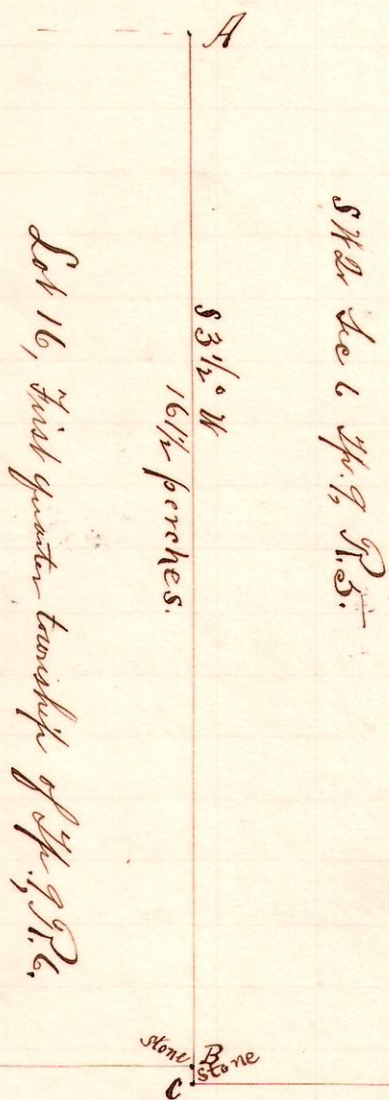 A
SW Qr Sec 6 Tp. 9, R. 5.
S 3½° W
16½ perches.
Lot 16, First quarter township of Tp. 9, R. 6.
stone B
stone
C